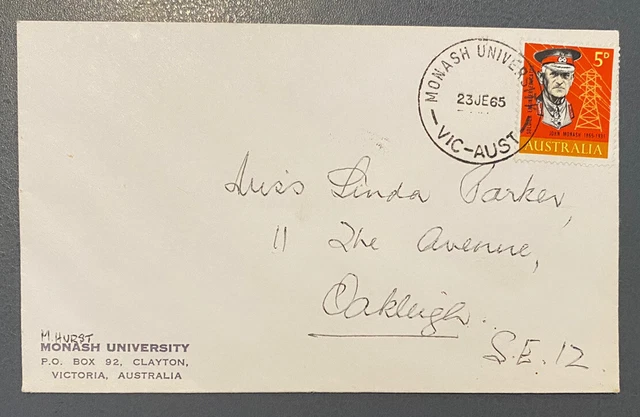 MONASH UNIVERS
23JE65
VIC-AUST
5D
JOHN MONASH 1865-1931
AUSTRALIA
Miss Linda Parker,
11 The Avenue,
Oakleigh.
S.E. 12.
M. HURST
MONASH UNIVERSITY
P.O. BOX 92, CLAYTON,
VICTORIA, AUSTRALIA